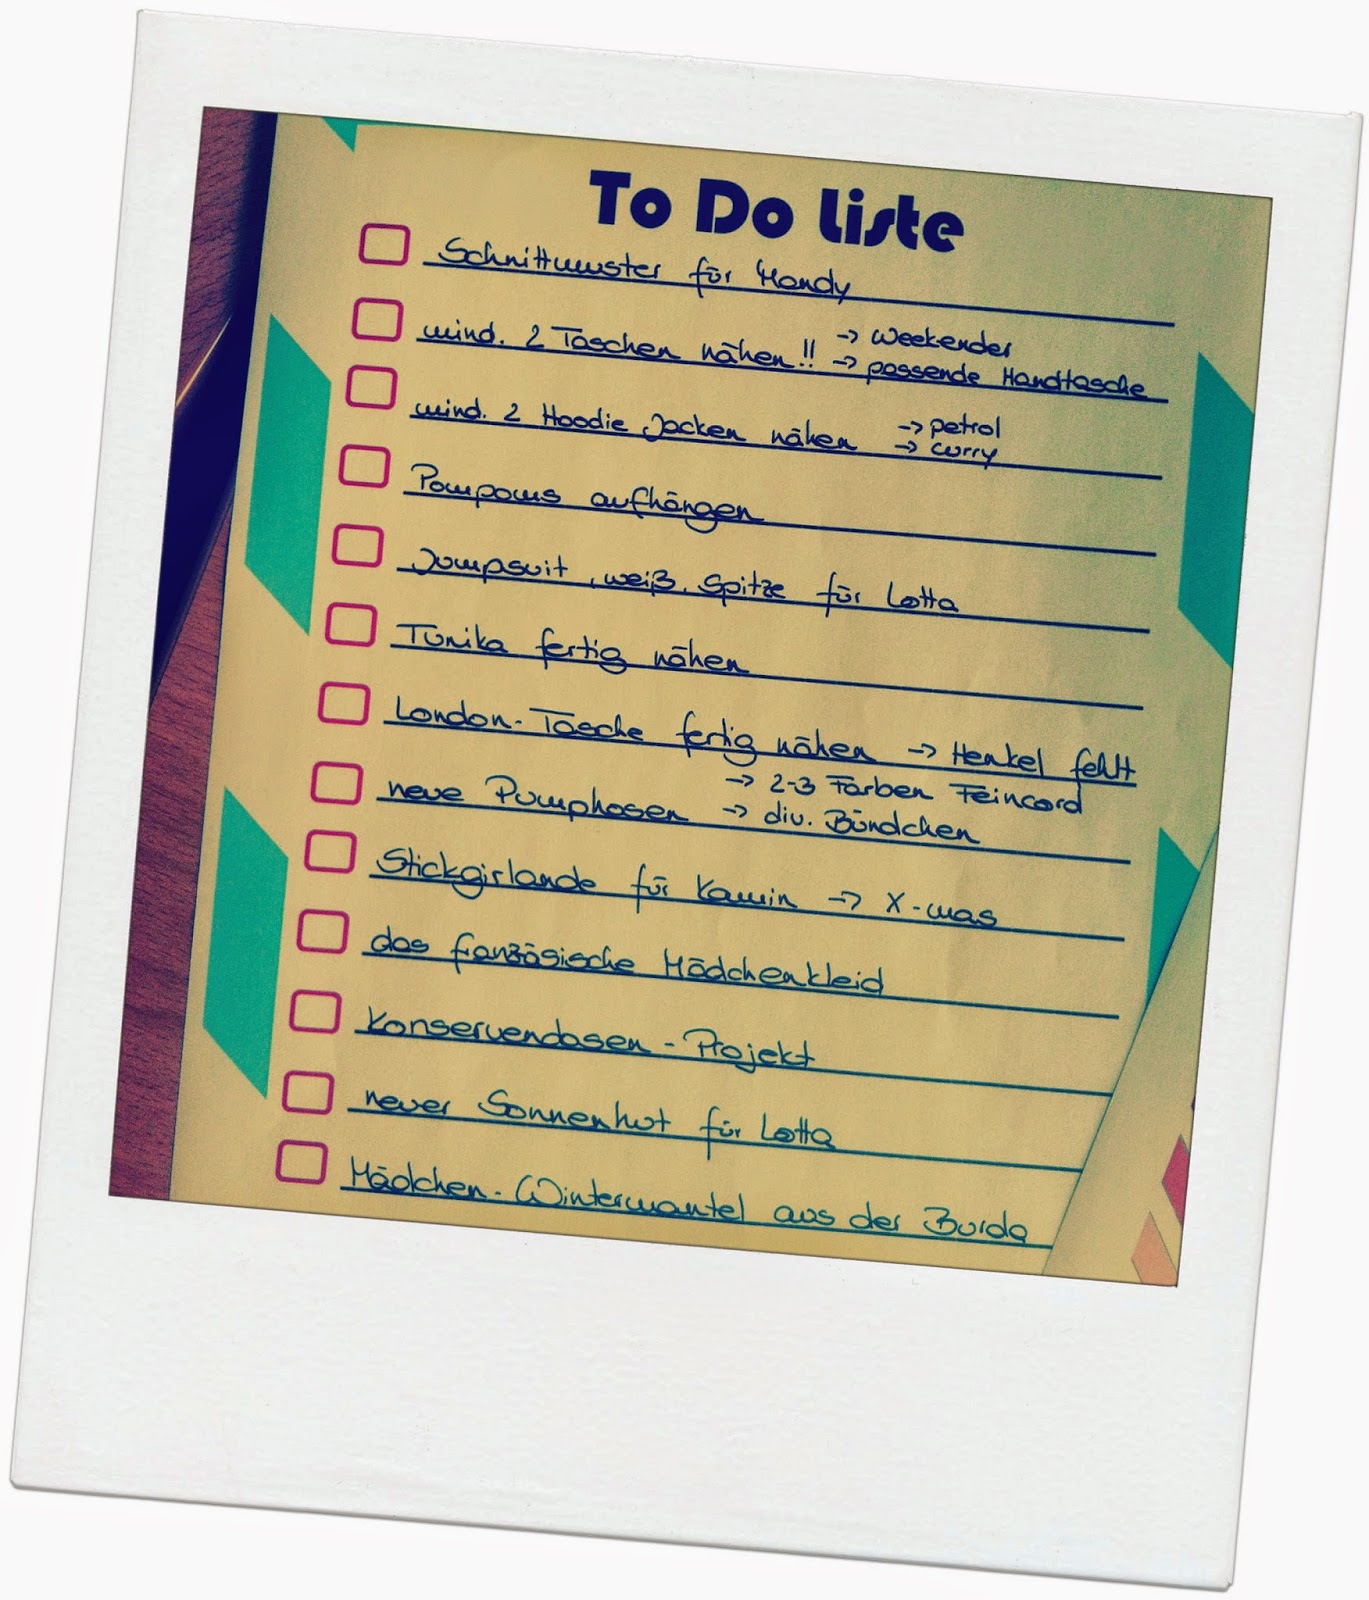 To Do Liste
Schnittmuster für Mandy
mind. 2 Taschen nähen!! -> Weekender
-> passende Handtasche
mind. 2 Hoodie Jacken nähen -> petrol
-> curry
Pompoms aufhängen
Jumpsuit, weiß, Spitze für Lotta
Tunika fertig nähen
London-Tasche fertig nähen -> Henkel fehlt
neue Pumphosen -> 2-3 Farben Feincord
-> div. Bündchen
Stickgirlande für Kamin -> X-mas
das französische Mädchenkleid
Konservendosen-Projekt
neuer Sonnenhut für Lotta
Mädchen-Wintermantel aus der Burda